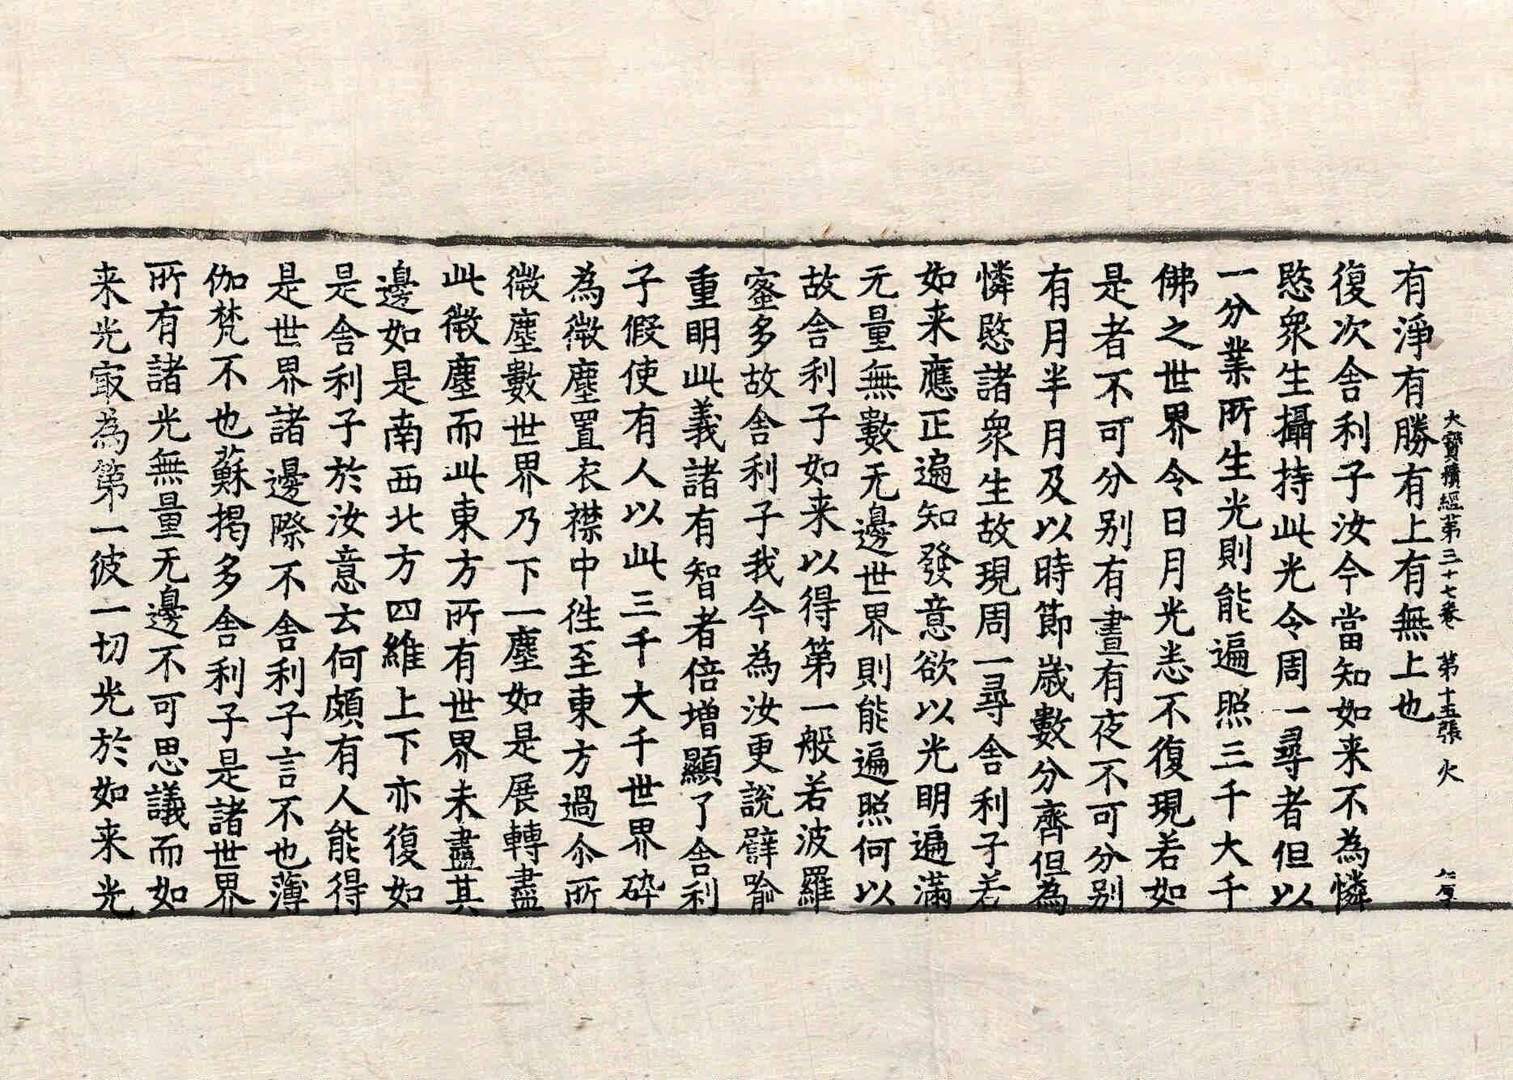 大寶積經第三十七卷 第十五張 火
有淨有勝有上有無上也
復次舍利子汝今當知如来不為憐
愍衆生攝持此光令周一尋者但以
一分業所生光則能遍照三千大千
佛之世界令日月光悉不復現若如
是者不可分别有晝有夜不可分别
有月半月及以時節歲數分齊但為
憐愍諸衆生故現周一尋舍利子若
如来應正遍知發意欲以光明遍滿
无量無數无邊世界則能遍照何以
故舍利子如来以得第一般若波羅
蜜多故舍利子我今為汝更說譬喻
重明此義諸有智者倍增顯了舍利
子假使有人以此三千大千世界碎
為微塵置衣襟中徃至東方過尒所
微塵數世界乃下一塵如是展轉盡
此微塵而此東方所有世界未盡其
邊如是南西北方四維上下亦復如
是舍利子於汝意云何頗有人能得
是世界諸邊際不舍利子言不也薄
伽梵不也蘇揭多舍利子是諸世界
所有諸光無量无邊不可思議而如
来光㝡為第一彼一切光於如来光